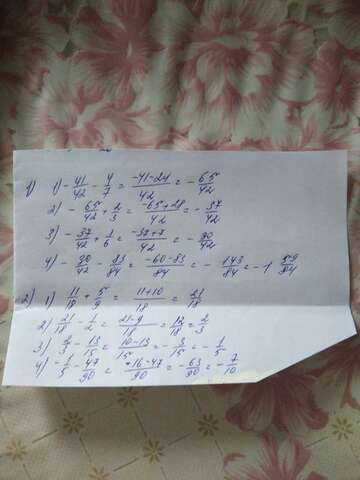 1) 1) -41/42 - 4/7 = -41-24/42 = -65/42
2) -65/42 + 2/3 = -65+28/42 = -37/42
3) -37/42 + 1/6 = -37+7/42 = -30/42
4) -30/42 - 83/84 = -60-83/84 = -143/84 = -1 59/84
2) 1) 11/18 + 5/9 = 11+10/18 = 21/18
2) 21/18 - 1/2 = 21-9/18 = 12/18 = 2/3
3) 2/3 - 13/15 = 10-13/15 = -3/15 = -1/5
4) -1/5 - 47/90 = -16-47/90 = -63/90 = -7/10